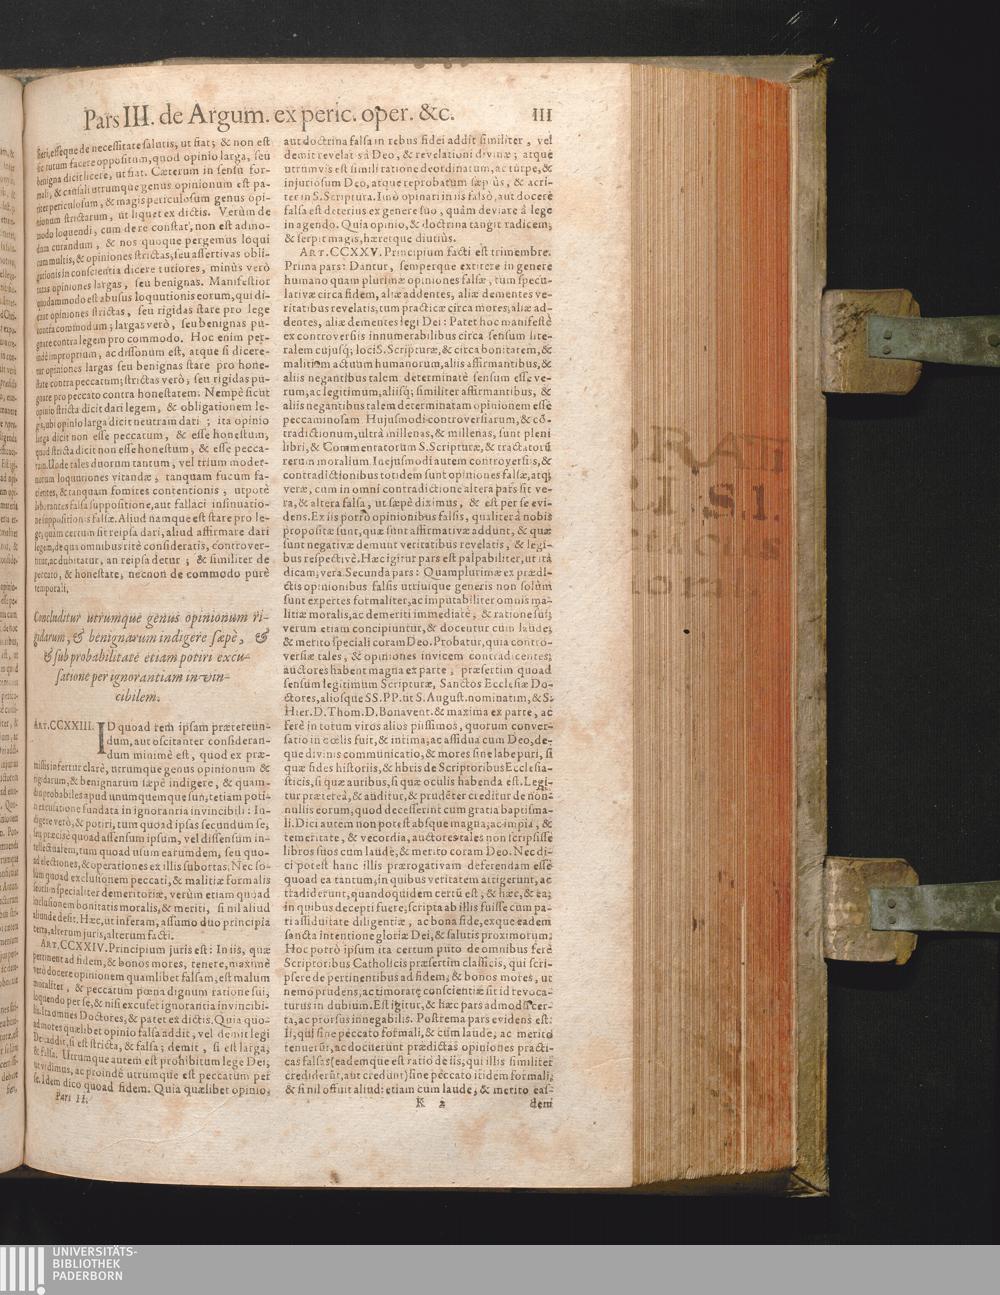 Pars III. de Argum. ex peric. oper. &c. III
fieri, esseque de necessitate salutis, ut fiat; & non est
sic tutum facere oppositum, quod opinio larga, seu
benigna dicit licere, ut fiat. Cæterum in sensu for-
mali, & causali utrumque genus opinionum est pa-
riter periculosum, & magis periculosum genus opi-
nionum strictarum, ut liquet ex dictis. Verùm de
modo loquendi, cum de re constat, non est admo-
dum curandum, & nos quoque pergemus loqui
cum multis, & opiniones strictas, seu assertivas obli-
gationis in conscientia dicere tutiores, minùs verò
tutas opiniones largas, seu benignas. Manifestior
quodammodo est abusus loquutionis eorum, qui di-
cunt opiniones strictas, seu rigidas stare pro lege
contra commodum; largas verò, seu benignas pu-
gnare contra legem pro commodo. Hoc enim per-
inde improprium, ac dissonum est, atque si dicere-
tur opiniones largas seu benignas stare pro hone-
state contra peccatum; strictas verò, seu rigidas pu-
gnare pro peccato contra honestatem. Nempè sicut
opinio stricta dicit dari legem, & obligationem le-
gis, ubi opinio larga dicit neutram dari; ita opinio
larga dicit non esse peccatum, & esse honestum,
quod stricta dicit non esse honestum, & esse pecca-
tum. Unde tales duorum tantum, vel trium moder-
norum loquutiones vitandæ, tanquam fucum fa-
cientes, & tanquam fomites contentionis, utpotè
laborantes falsa suppositione, aut fallaci insinuatio-
ne suppositionis falsæ. Aliud namque est stare pro le-
ge, quàm certum sit reipsa dari, aliud affirmare dari
legem, de qua omnibus ritè consideratis, controver-
titur, ac dubitatur, an reipsa detur; & similiter de
peccato, & honestate, necnon de commodo purè
temporali.
Concluditur utrumque genus opinionum ri-
gidarum, & benignarum indigere sæpè, &
& sub probabilitate etiam potiri excu-
satione per ignorantiam invin-
cibilem.
ART. CCXXIII. ID quod rem ipsam prætereun-
dum, aut oscitanter consideran-
dum minimè est, quod ex præ-
missis infertur clarè, utrumque genus opinionum &
rigidarum, & benignarum sæpè indigere, & quam-
diu probabiles apud unumquemque sunt, etiam poti-
ri excusatione fundata in ignorantia invincibili: In-
digere verò, & potiri, tum quoad ipsas secundum se,
seu præcisè quoad assensum ipsum, vel dissensum in-
tellectualem, tum quoad usum earumdem, seu quo-
ad electiones, & operationes ex illis subortas. Nec so-
lum quoad exclusionem peccati, & malitiæ formalis
seorsim specialiter demeritoriæ, verùm etiam quoad
inclusionem bonitatis moralis, & meriti, si nil aliud
aliunde desit. Hæc, ut inferam, assumo duo principia
certa, alterum juris, alterum facti.
ART. CCXXIV. Principium juris est: In iis, quæ
pertinent ad fidem, & bonos mores, tenere, maximè
verò docere opinionem quamlibet falsam, est malum
moraliter, & peccatum pœna dignum ratione sui,
loquendo per se, & nisi excuset ignorantia invincibi-
lis. Ita omnes Doctores, & patet ex dictis. Quia quo-
ad mores quælibet opinio falsa addit, vel demit legi
Dei: addit, si est stricta, & falsa; demit, si est larga,
& falsa. Utrumque autem est prohibitum lege Dei,
ut vidimus, ac proinde utrumque est peccatum per
se. Idem dico quoad fidem. Quia quælibet opinio,
Pars II.
aut doctrina falsa in rebus fidei addit similiter, vel
demit revelatis à Deo, & revelationi divinæ; atque
utrumvis est simili ratione deordinatum, ac turpe, &
injuriosum Deo, atque reprobatum sæpiùs, & acri-
ter in S. Scriptura. Imò opinari in iis falsò, aut docere
falsa est deterius ex genere suo, quàm deviare à lege
in agendo. Quia opinio, & doctrina tangit radicem,
& serpit magis, hæretque diutiùs.
ART. CCXXV. Principium facti est trimembre.
Prima pars: Dantur, semperque extitere in genere
humano quam plurimæ opiniones falsæ, tum specu-
lativæ circa fidem, aliæ addentes, aliæ dementes ve-
ritatibus revelatis, tum practicæ circa mores, aliæ ad-
dentes, aliæ dementes legi Dei: Patet hoc manifestè
ex controversiis innumerabilibus circa sensum lite-
ralem cujusq; loci S. Scripturæ, & circa bonitatem, &
malitiam actuum humanorum, aliis affirmantibus, &
aliis negantibus talem determinatè sensum esse ve-
rum, ac legitimum, aliisq; similiter affirmantibus, &
aliis negantibus talem determinatam opinionem esse
peccaminosam. Hujusmodi controversiarum, & cõ-
tradictionum, ultrà millenas, & millenas, sunt pleni
libri, & Commentatorum S. Scripturæ, & tractatorũ
rerum moralium. In ejusmodi autem controversiis, &
contradictionibus totidem sunt opiniones falsæ, atq;
veræ, cum in omni contradictione altera pars sit ve-
ra, & altera falsa, ut sæpè diximus, & est per se evi-
dens. Ex iis porrò opinionibus falsis, qualiter à nobis
propositæ sunt, quæ sunt affirmativæ addunt, & quæ
sunt negativæ demunt veritatibus revelatis, & legi-
bus respectivè. Hæc igitur pars est palpabiliter, ut ità
dicam, vera. Secunda pars: Quamplurimæ ex prædi-
ctis opinionibus falsis utriusque generis non solùm
sunt expertes formaliter, ac imputabiliter omnis ma-
litiæ moralis, ac demeriti immediatè, & ratione sui;
verum etiam concipiuntur, & docentur cùm laude,
& merito speciali coram Deo. Probatur, quia contro-
versiæ tales, & opiniones invicem contradicentes,
auctores habent magna ex parte, præsertim quoad
sensum legitimum Scripturæ, Sanctos Ecclesiæ Do-
ctores, aliosque SS. PP. ut S. August. nominatim, & S.
Hier. D. Thom. D. Bonavent. & maxima ex parte, ac
ferè in totum viros alios piissimos, quorum conver-
satio in cœlis fuit, & intima, ac assidua cum Deo, de-
que divinis communicatio, & mores sine labe puri, si
quæ fides historiis, & libris de Scriptoribus Ecclesia-
sticis, si quæ auribus, si quæ oculis habenda est. Legi-
tur prætereà, & auditur, & prudẽter creditur de non-
nullis eorum, quod decesserint cum gratia baptisma-
li. Dici autem non potest absque magna, ac impia, &
temeritate, & vecordia, auctores tales non scripsisse
libros suos cum laude, & merito coram Deo. Nec di-
ci potest hanc illis prærogativam deferendam esse
quoad ea tantum, in quibus veritatem attigerunt, ac
tradiderunt, quandoquidem certũ est, & hæc, & ea,
in quibus decepti fuere, scripta ab illis fuisse cum pa-
ri assiduitate diligentiæ, ac bona fide, exque eadem
sancta intentione gloriæ Dei, & salutis proximorum.
Hoc porrò ipsum ita certum puto de omnibus ferè
Scriptoribus Catholicis præsertim classicis, qui scri-
psere de pertinentibus ad fidem, & bonos mores, ut
nemo prudens, ac timoratæ conscientiæ sit id revoca-
turus in dubium. Est igitur, & hæc pars admodũ cer-
ta, ac prorsus innegabilis. Postrema pars evidens est:
Ii, qui sine peccato formali, & cùm laude, ac merito
tenuerũt, ac docuerunt prædictas opiniones practi-
cas falsas (eademque est ratio de iis, qui illis similiter
crediderũt, aut credunt) sine peccato itidem formali,
& si nil offuit aliud: etiam cum laude, & merito eas-
K 2 dem
UNIVERSITÄTS-
BIBLIOTHEK
PADERBORN